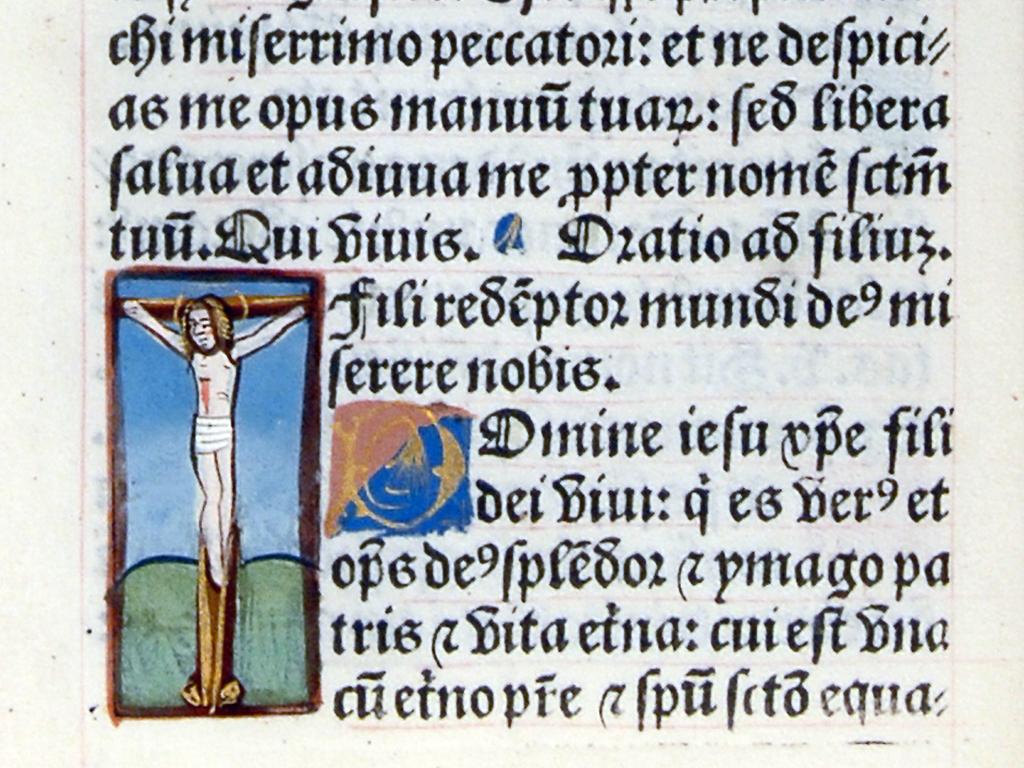 chi miserrimo peccatori: et ne despici⸗
as me opus manuū tuaꝝ: sed libera
salua et adiuua me ꝓpter nomē sctm̄
tuū. Qui viuis. Oratio ad filiuꝫ.
Fili redēptor mundi deꝰ mi
serere nobis.
Domine iesu xp̄e fili
dei viui: q̇ es verꝰ et
op̄s deꝰ splēdor ⁊ ymago pa
tris ⁊ vita et̄na: cui est vna
cū et̄no pr̄e ⁊ spū sctō equa⸗